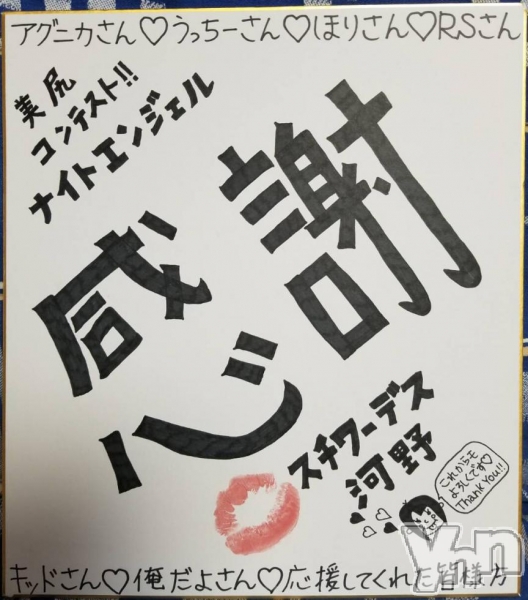 アグニカさん♡うっちーさん♡ほりさん♡RSさん
美尻
コンテスト!!
ナイトエンジェル
感謝
スチワーデス
河野
これからモ
よろしくです♡
Thank You!!
キッドさん♡俺だよさん♡応援してくれた皆様方